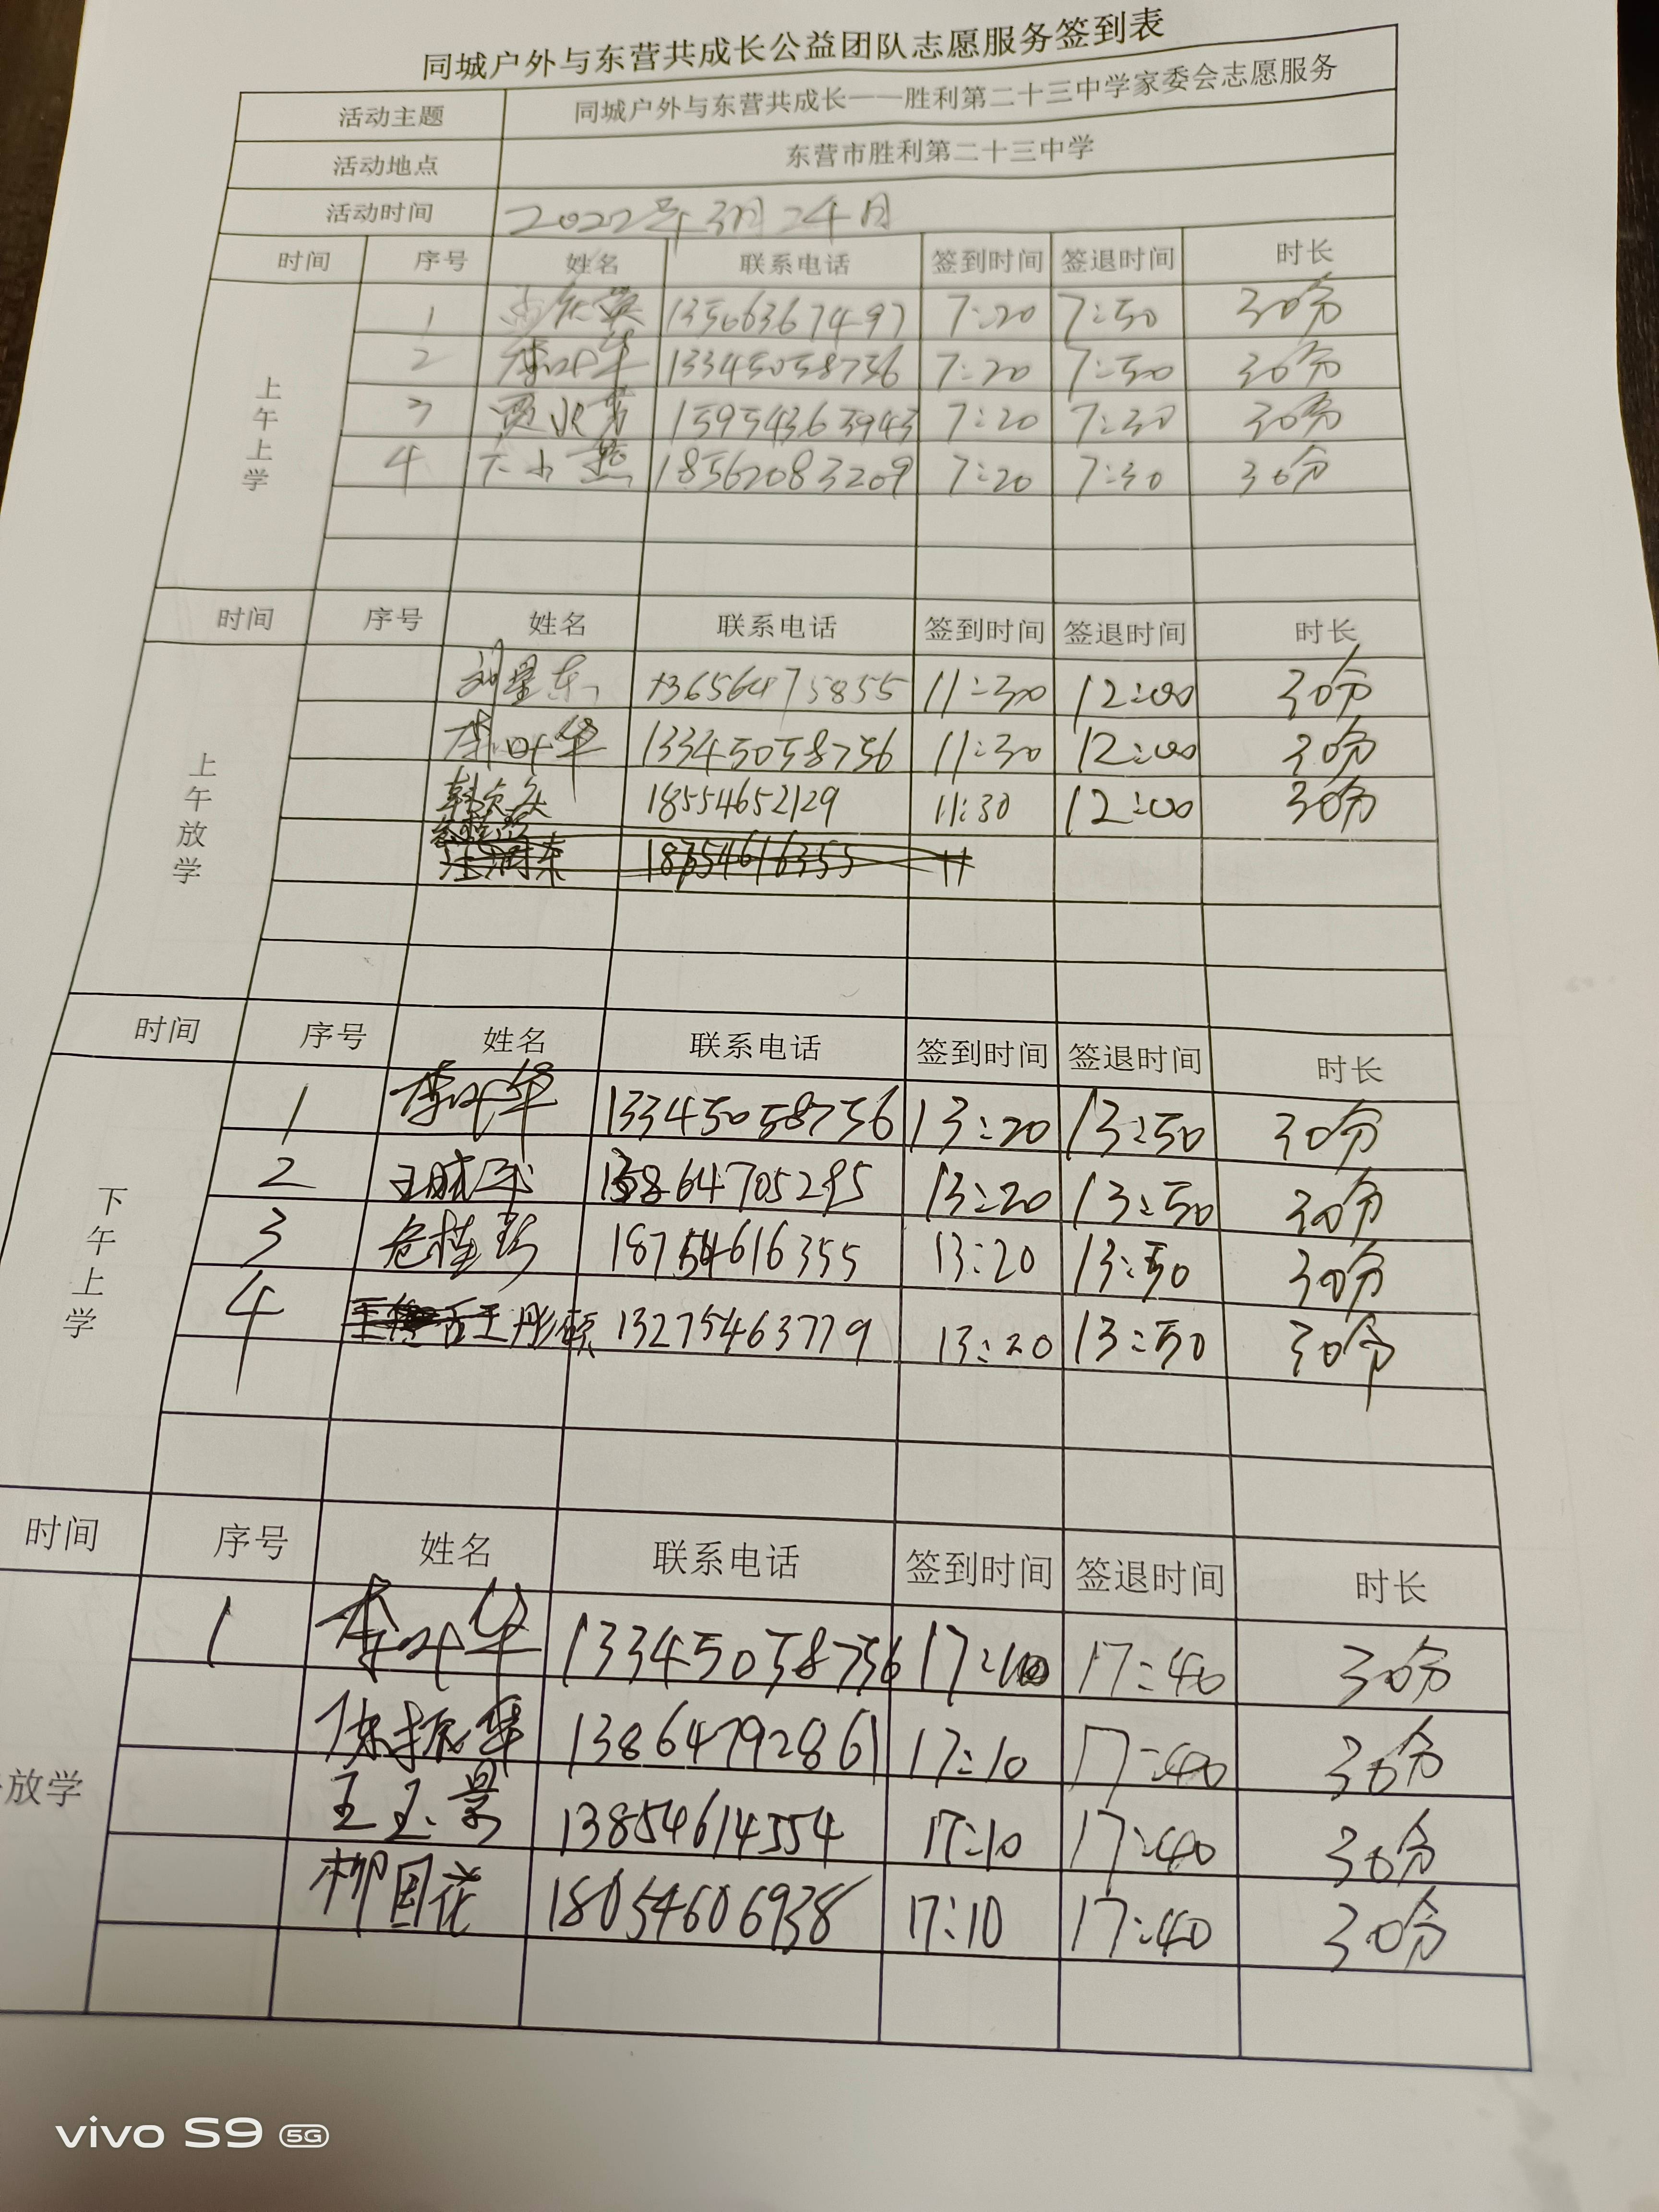 同城户外与东营共成长公益团队志愿服务签到表
活动主题 同城户外与东营共成长——胜利第二十三中学家委会志愿服务
活动地点 东营市胜利第二十三中学
活动时间 2022年3月24日
时间 序号 姓名 联系电话 签到时间 签退时间 时长
上午上学
1 13506367497 7:20 7:50 30分
2 李叶华 13345058756 7:20 7:50 30分
3 15954363943 7:20 7:50 30分
4 18562083209 7:20 7:50 30分
时间 序号 姓名 联系电话 签到时间 签退时间 时长
上午放学
刘星东 13656475855 11:30 12:00 30分
李叶华 13345058756 11:30 12:00 30分
18554652129 11:30 12:00 30分
18754616355 11
时间 序号 姓名 联系电话 签到时间 签退时间 时长
下午上学
1 李叶华 13345058756 13:20 13:50 30分
2 13864705295 13:20 13:50 30分
3 18754616355 13:20 13:50 30分
4 王彤硕 13275463779 13:20 13:50 30分
时间 序号 姓名 联系电话 签到时间 签退时间 时长
放学
1 李叶华 13345058756 17:10 17:40 30分
陈振华 13864792861 17:10 17:40 30分
王玉景 13854614554 17:10 17:40 30分
柳国花 18054606938 17:10 17:40 30分
vivo S9 5G